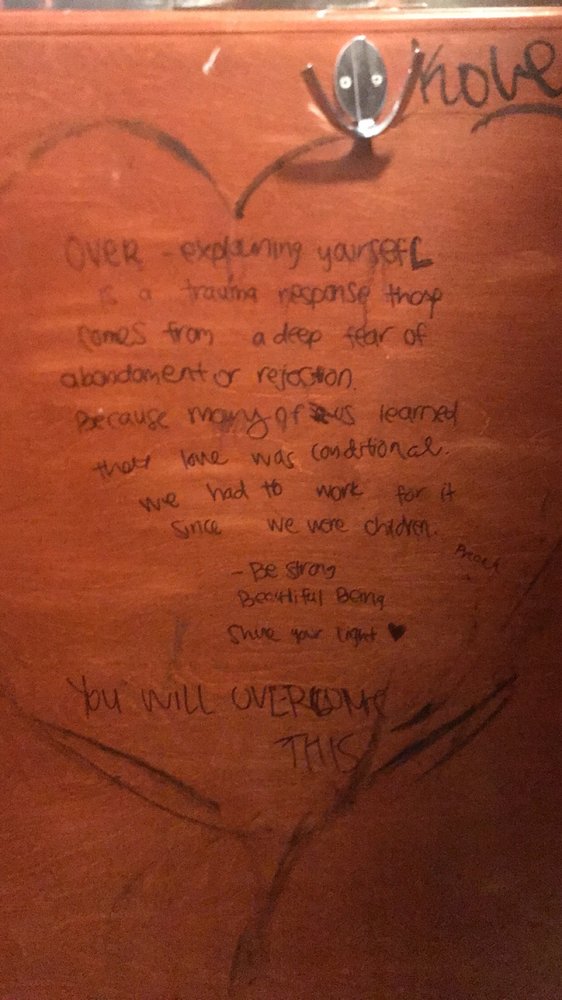 Kove
OVER - explaining yourself
is a trauma response that
comes from a deep fear of
abondament or rejection.
Because many of us learned
that love was conditional.
we had to work for it
since we were children.
Preach
- Be strong
Beautiful Being
Shine your light ♥
YOU WILL OVERCOME
THIS